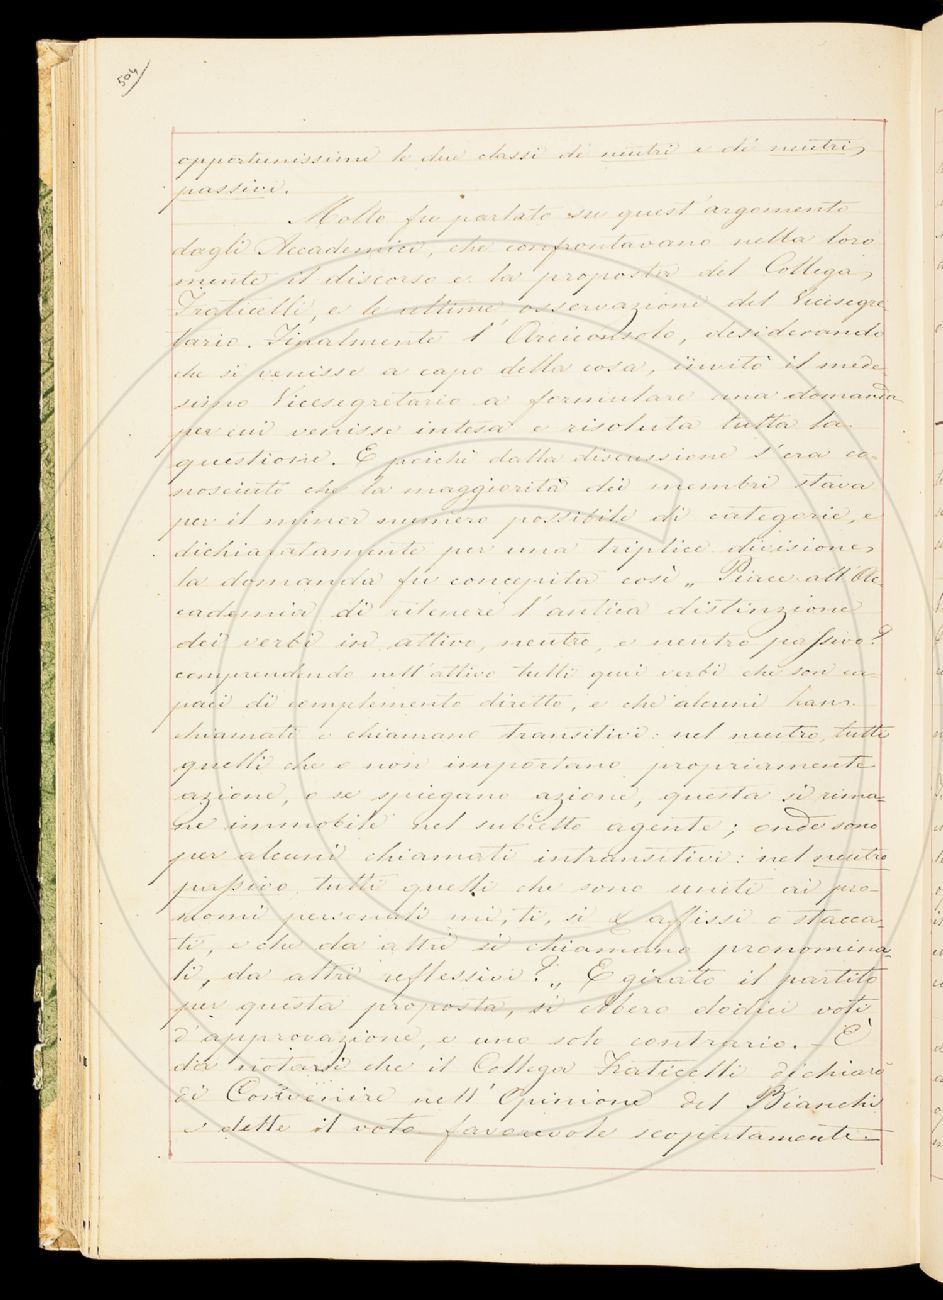 504
opportunissime le due classi di neutri e di neutri
passivi.
Molto fu parlato su quest'argomento
dagli Accademici, che confrontavano nella loro
mente il discorso e la proposta del Collega
Fraticelli, e le ultime osservazioni del Vicesegre-
tario. Finalmente l'Arciconsolo, desiderando
che si venisse a capo della cosa, invitò il mede-
simo Vicesegretario a formulare una domanda
per cui venisse intesa e risoluta tutta la
questione. E poichè dalla discussione s'era co-
nosciuto che la maggiorità dei membri stava
per il minor numero possibile di categorie, e
dichiaratamente per una triplice divisione,
la domanda fu concepita così „ Piace all'Ac-
cademia di ritenere l'antica distinzione
dei verbi in attivo, neutro, e neutro passivo?
comprendendo nell'attivo tutti quei verbi che son ca-
paci di complemento diretto, e che alcuni han
chiamati o chiamano transitivi: nel neutro, tutti
quelli che o non importano propriamente
azione, o se spiegano azione, questa si rima-
ne immobile nel subietto agente; onde sono
per alcuni chiamati intransitivi: nel neutro
passivo tutti quelli che sono uniti ai pro-
nomi personali mi, ti, si affissi o stacca-
ti, e che da altri si chiamano pronomina-
li, da altri reflessivi? „ E girato il partito
per questa proposta, si ebbero dodici voti
d'approvazione, e uno solo contrario. — È
da notarsi che il Collega Fraticelli dichiarò
di Convenire nell'Opinione del Bianchi
e dette il voto favorevole scopertamente —